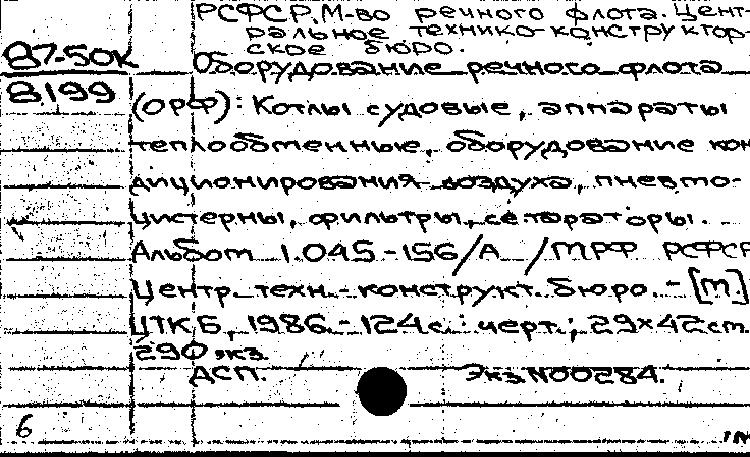 РСФСР. М-во речного флота. Цент-
ральное технико-конструктор-
ское бюро.
87-50к
Оборудование речного флота
8199
(ОРФ): Котлы судовые, аппараты
теплообменные, оборудование кон-
диционирования воздуха, пневмо-
цистерны, фильтры, сепараторы.
Альбом 1.045-156/А / МРФ РСФСР
Центр. техн.-конструкт. бюро. - [М.]
ЦТКБ, 1986. - 124 с.: черт.; 29х42 см.
290 экз.
ДСП. Экз. N00284.
6